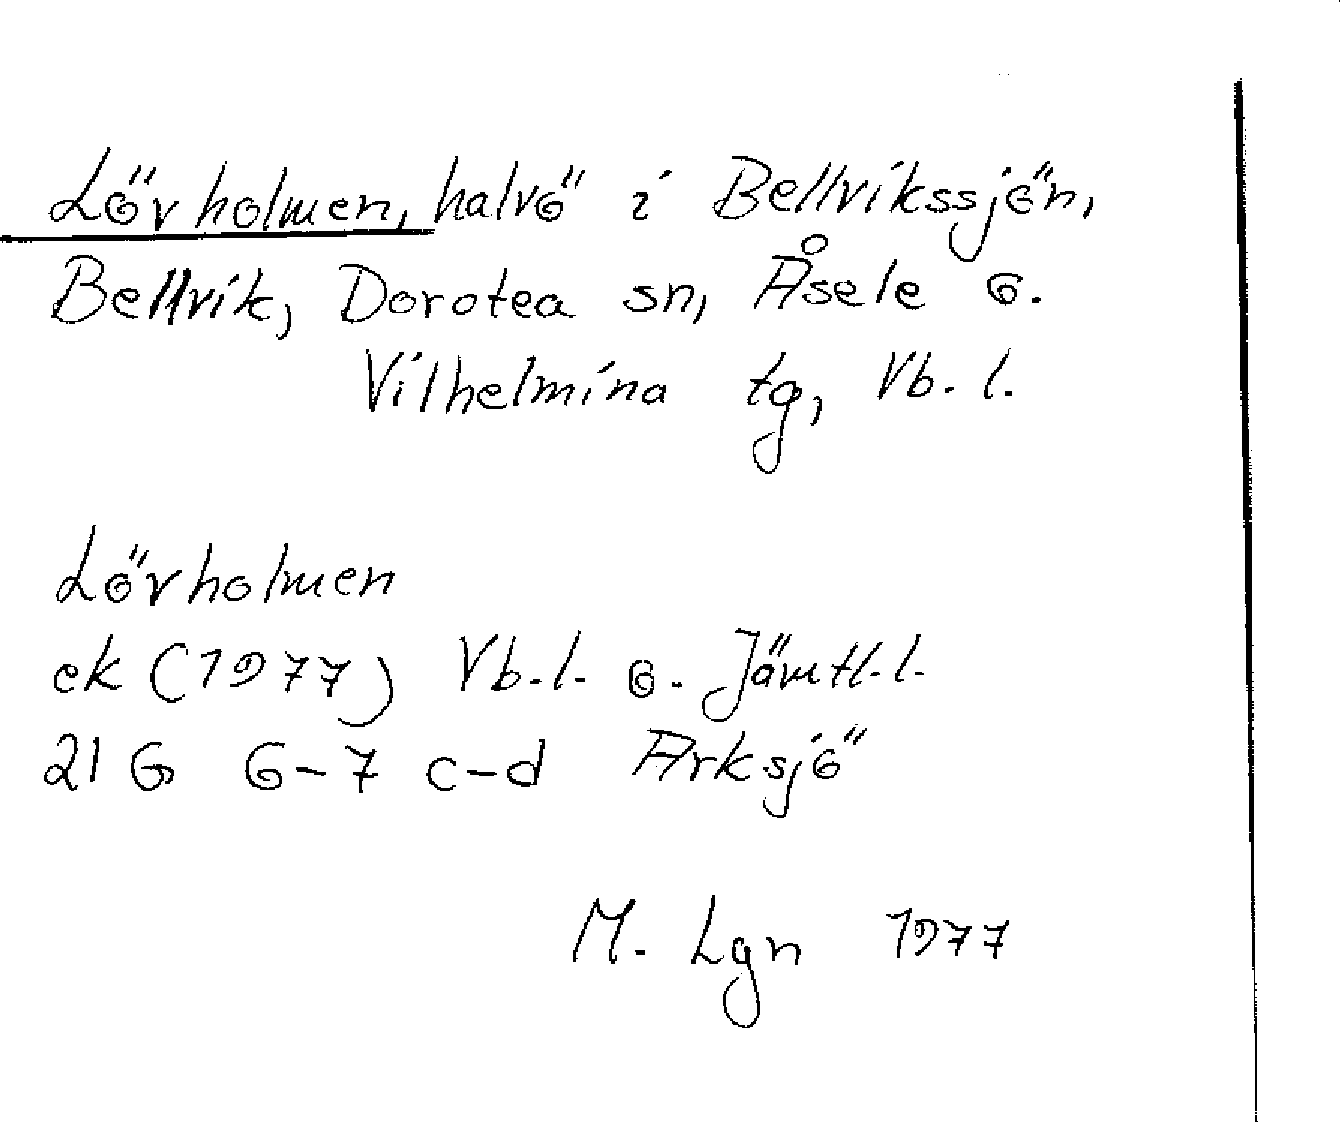 Lövholmen, halvö i Bellvikssjön,
Bellvik, Dorotea sn, Åsele o.
Vilhelmina tg, Vb. l.
Lövholmen
ek (1977) Vb.l. o. Jämtl.l.
21 G 6-7 c-d Arksjö
M. Lgn 1977